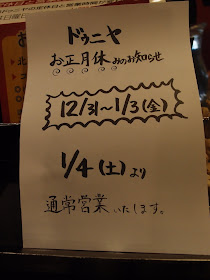 ドゥニヤ
お正月休みのお知らせ
12/31〜1/3(金)
1/4(土)より
通常営業いたします。